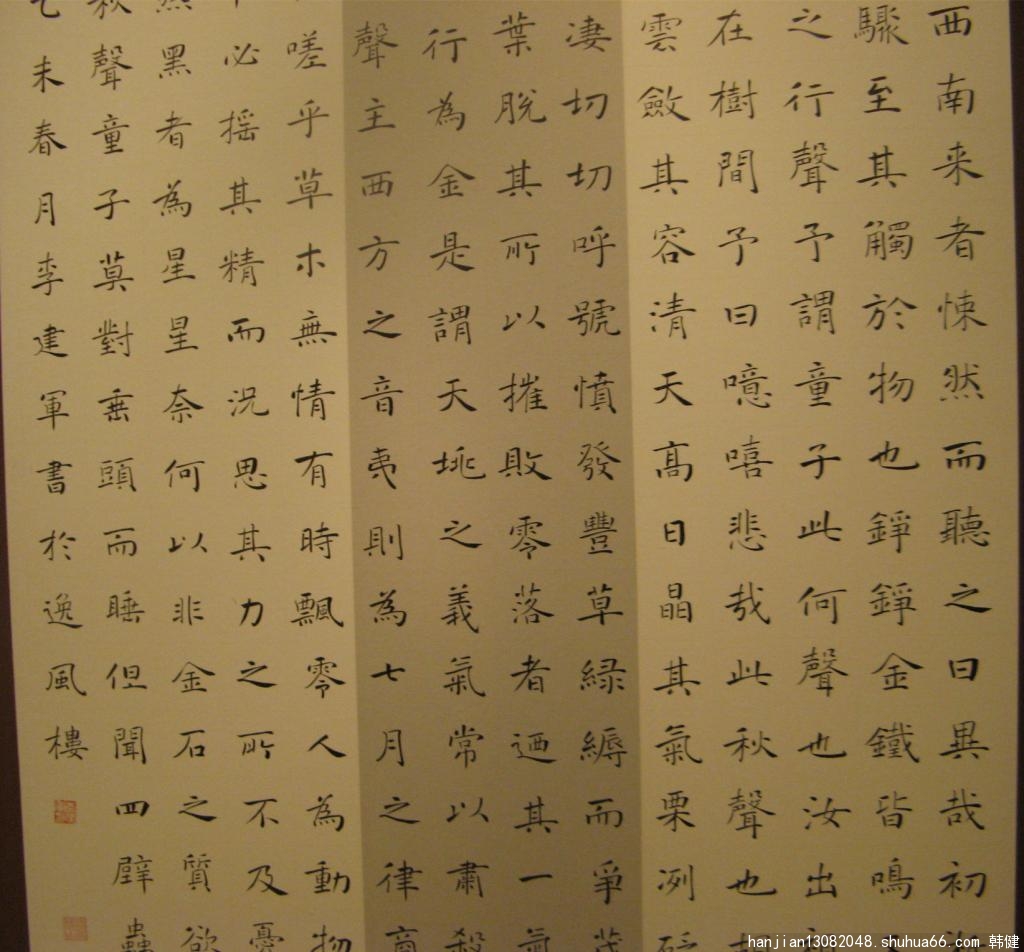 西南来者悚然而聽之曰異哉初
驟至其觸於物也錚錚金鐵皆鳴
之行聲予謂童子此何聲也汝出
在樹間予曰噫嘻悲哉此秋聲也
雲斂其容清天高日晶其氣栗冽砭
凄切切呼號憤發豐草緑縟而爭茂
葉脫其所以摧敗零落者迺其一氣
行為金是謂天地之義氣常以肅殺
聲主西方之音夷則為七月之律商
嗟乎草木無情有時飄零人為動物
必搖其精而況思其力之所不及憂
然黑者為星星奈何以非金石之質欲
秋聲童子莫對垂頭而睡但聞四壁蟲
乙未春月李建軍書於逸風樓
hanjian13082048.shuhua66.com 韩健